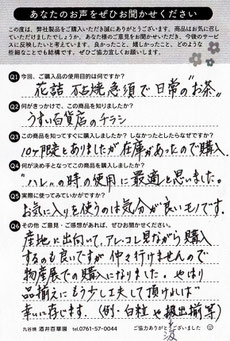 あなたのお声をぜひお聞かせください
この度は、弊社製品をご購入いただき誠にありがとうございます。商品はお気に召して
いただけましたでしょうか。あなた様のご意見をお聞かせいただき、今後のサービス
に反映したいと考えています。良かったこと、嬉しかったこと、どのような
些細なことでも結構です。ぜひご協力宜しくお願いします。
Q1 今回、ご購入品の使用目的は何ですか?
花詰 石焼急須で日常の"お茶"
Q2 何がきっかけで、この商品を知りましたか?
うすい百貨店のチラシ
Q3 この商品を知ってすぐに購入しましたか? しなかったとしたらなぜですか?
10ヶ限定とありましたが在庫があったので購入
Q4 何が決め手となってこの商品を購入しましたか?
"ハレ"の時の使用に最適と思いました。
Q5 実際に使ってみていかがですか?
お気に入りを使うのは気分が良いモノです。
Q6 その他 ご意見・ご感想があれば、ぜひお聞かせください。
産地に出向いて、アレコレ見ながら購入
するのも良いですが 仲々行けませんので
物産展での購入になりました。やはり
品揃えにもう少し工夫して頂ければ
幸いに存じます。(例・白粒や 揃等)
九谷焼 酒井百華園 tel.0761-57-0044 ご協力ありがとうございました